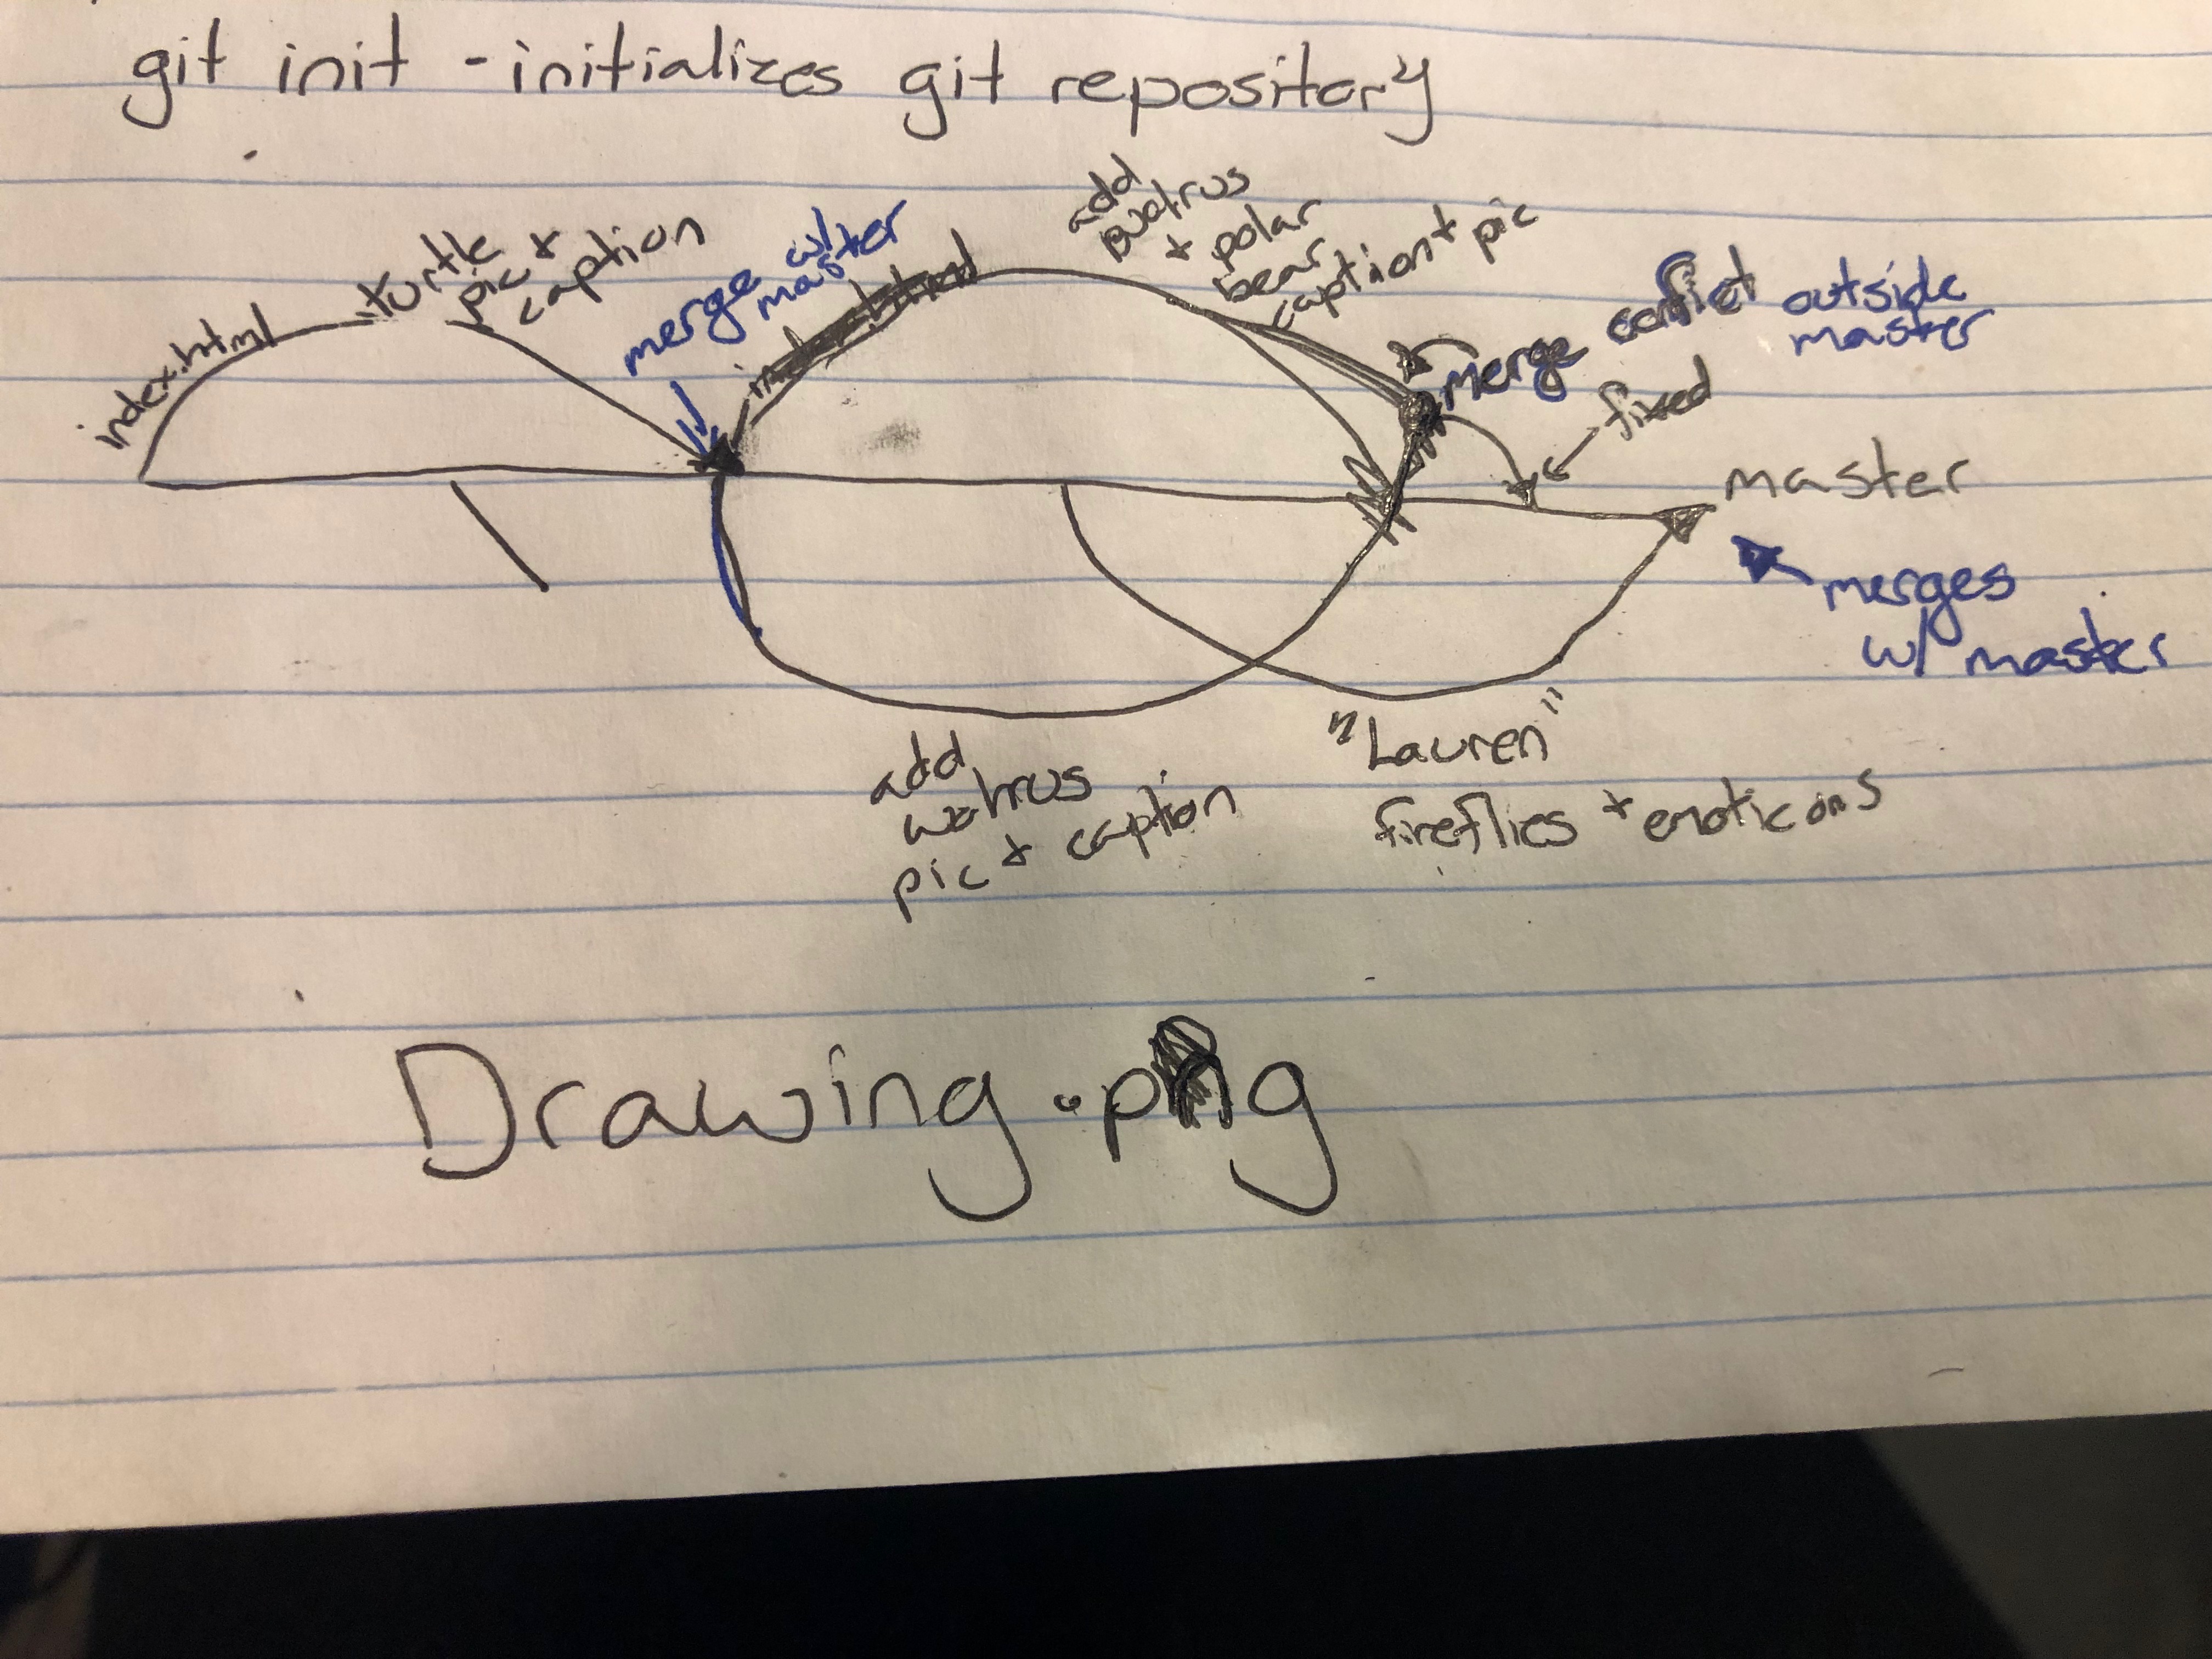 git init - initializes git repository
index.html
turtle +
pic caption
merge w/
master
add walrus
+ polar
bear
caption + pic
merge conflict outside
master
fixed
master
merges
w/ master
add walrus
pic + caption
"Lauren"
fireflies + emoticons
Drawing.png